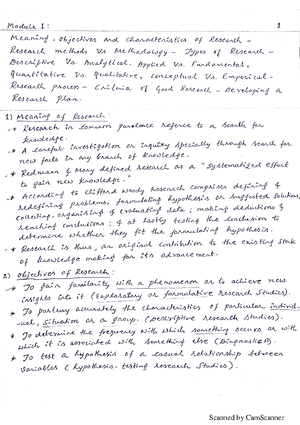 Module 1: 1
Meaning, Objectives and Characteristics of Research -
Research methods Vs Methodology - Types of Research -
Descriptive Vs. Analytical, Applied Vs. Fundamental,
Quantitative Vs. Qualitative, Conceptual Vs. Empirical -
Research process - Criteria of Good Research - Developing a
Research Plan.
1) Meaning of Research:
Research in common parlance refers to a search for
knowledge.
A careful investigation or inquiry specially through search for
new facts in any branch of knowledge.
Redman & Mory defined research as a "systematized effort
to gain new knowledge."
According to Clifford Woody research comprises defining &
redefining problems, formulating hypothesis or suggested solutions,
collecting, organising & evaluating data; making deductions &
reaching conclusions; & at lastly testing the conclusion to
determine whether they fit the formulating hypothesis.
Research is thus, an original contribution to the existing stock
of knowledge making for its advancement.
2) Objectives of Research:
To gain familiarity with a phenomenon or to achieve new
insights into it (Exploratory or formulative Research Studies).
To portray accurately the characteristics of particular individ-
-ual, situation or a group. (Descriptive research studies).
To determine the frequency with which something occurs or with
which it is associated with something else (Diagnostic).
To test a hypothesis of a causal relationship between
variables (hypothesis-testing research studies).
Scanned by CamScanner